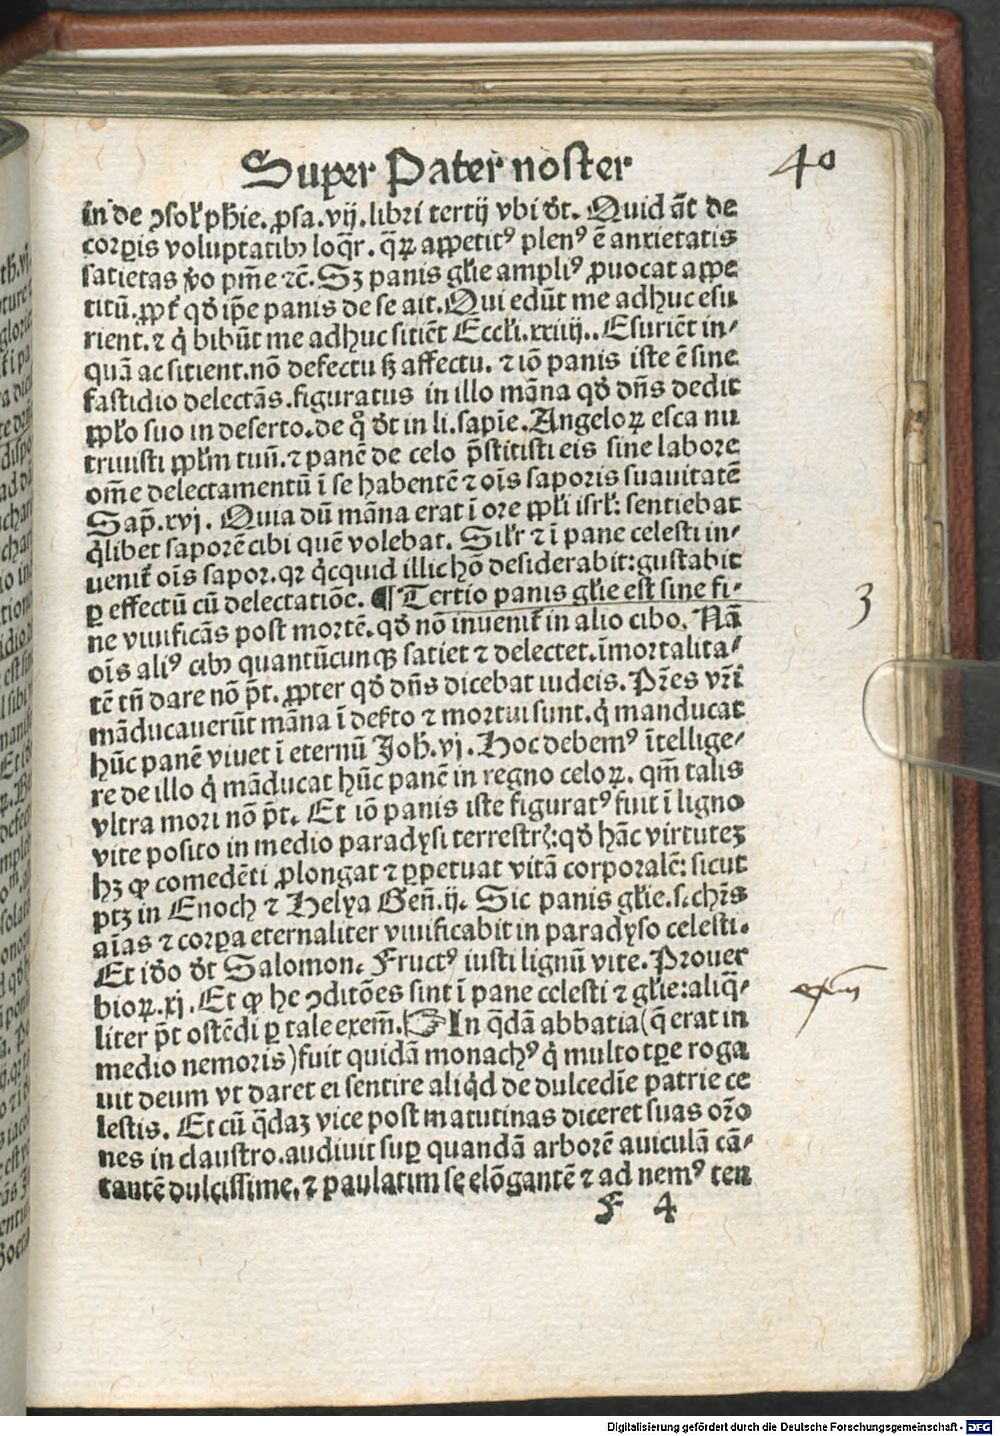 Super Pater noster
40
in de ↄsol' ph̄ie. ꝓsa. vij. libri tertij vbi d̄r. Quid aūt de
corꝑis voluptatibꝫ loq̄r. q̄ꝝ appetitꝰ plenꝰ ē anxietatis
satietas v̄o pn̄ie ⁊c̄. Sꝫ panis gl'ie ampliꝰ ꝓuocat appe
titū. ꝓpt' qḋ ip̄e panis de se ait. Qui edūt me adhuc esu
rient. ⁊ q̇ bibūt me adhuc sitiēt Eccl'i. xxiiij.. Esuriēt in⸗
quā ac sitient. nō defectu ſꝫ affectu. ⁊ iō panis iste ē sine
fastidio delectās. figuratus in illo māna qḋ dn̄s dedit
ppl'o suo in deserto. de q̊ d̄r in li. sapīe. Angeloꝝ esca nu
triuisti ppl'm tuū. ⁊ panē de celo p̄stitisti eis sine labore
om̄e delectamentū ī se habentē ⁊ oīs saporis suauitatē
Sap̄. xvj. Quia dū māna erat ī ore ppl'i isrl': sentiebat
q̇libet saporē cibi quē volebat. Sil'r ⁊ ī pane celesti in⸗
uenit' oīs sapor. qꝛ q̇cquid illic hō desiderabit: gustabit
ꝑ effectū cū delectatiōe. ¶ Tertio panis gl'ie est sine fi⸗
3
ne viuificās post mortē. qḋ nō inuenit' in alio cibo. Nā
oīs aliꝰ cibꝰ quantūcunqꝫ satiet ⁊ delectet. īmortalita⸗
tē tn̄ dare nō p̄t. ꝓpter qḋ dn̄s dicebat iudeis. Pr̄es vr̄i
māducauerūt māna ī def'to ⁊ mortui sunt. q̇ manducat
hūc panē viuet ī eternū Joh̄. vj. Hoc debemꝰ ītellige⸗
re de illo q̇ māducat hūc panē in regno celoꝝ. qm̄ talis
vltra mori nō p̄t. Et iō panis iste figuratꝰ fuit ī ligno
vite posito in medio paradysi terrestrꝭ: qḋ hāc virtuteꝫ
hꝫ ꝙ comedēti ꝓlongat ⁊ ꝑpetuat vitā corporalē: sicut
ptꝫ in Enoch ⁊ Helya Gen̄. ij. Sic panis gl'ie. s. chr̄s
aīas ⁊ corꝑa eternaliter viuificabit in paradyso celesti.
Et iḋo d̄r Salomon. Fructꝰ iusti lignū vite. Prouer
bioꝝ. xj. Et ꝙ he ↄditōes sint ī pane celesti ⁊ gl'ie: aliq̄⸗
exm̄
liter p̄t ostēdi ꝑ tale exem̄. ☞ In q̇dā abbatia (q̄ erat in
medio nemoris) fuit quidā monachꝰ q̇ multo tꝑe roga
uit deum vt daret ei sentire aliq̇d de dulcedīe patrie ce
lestis. Et cū q̇daꝫ vice post matutinas diceret suas or̄o
nes in claustro. audiuit suꝑ quandā arborē auiculā cā⸗
tantē dulcissime, ⁊ paulatim se elōgantē ⁊ ad nemꝰ ten
F 4
Digitalisierung gefördert durch die Deutsche Forschungsgemeinschaft - DFG